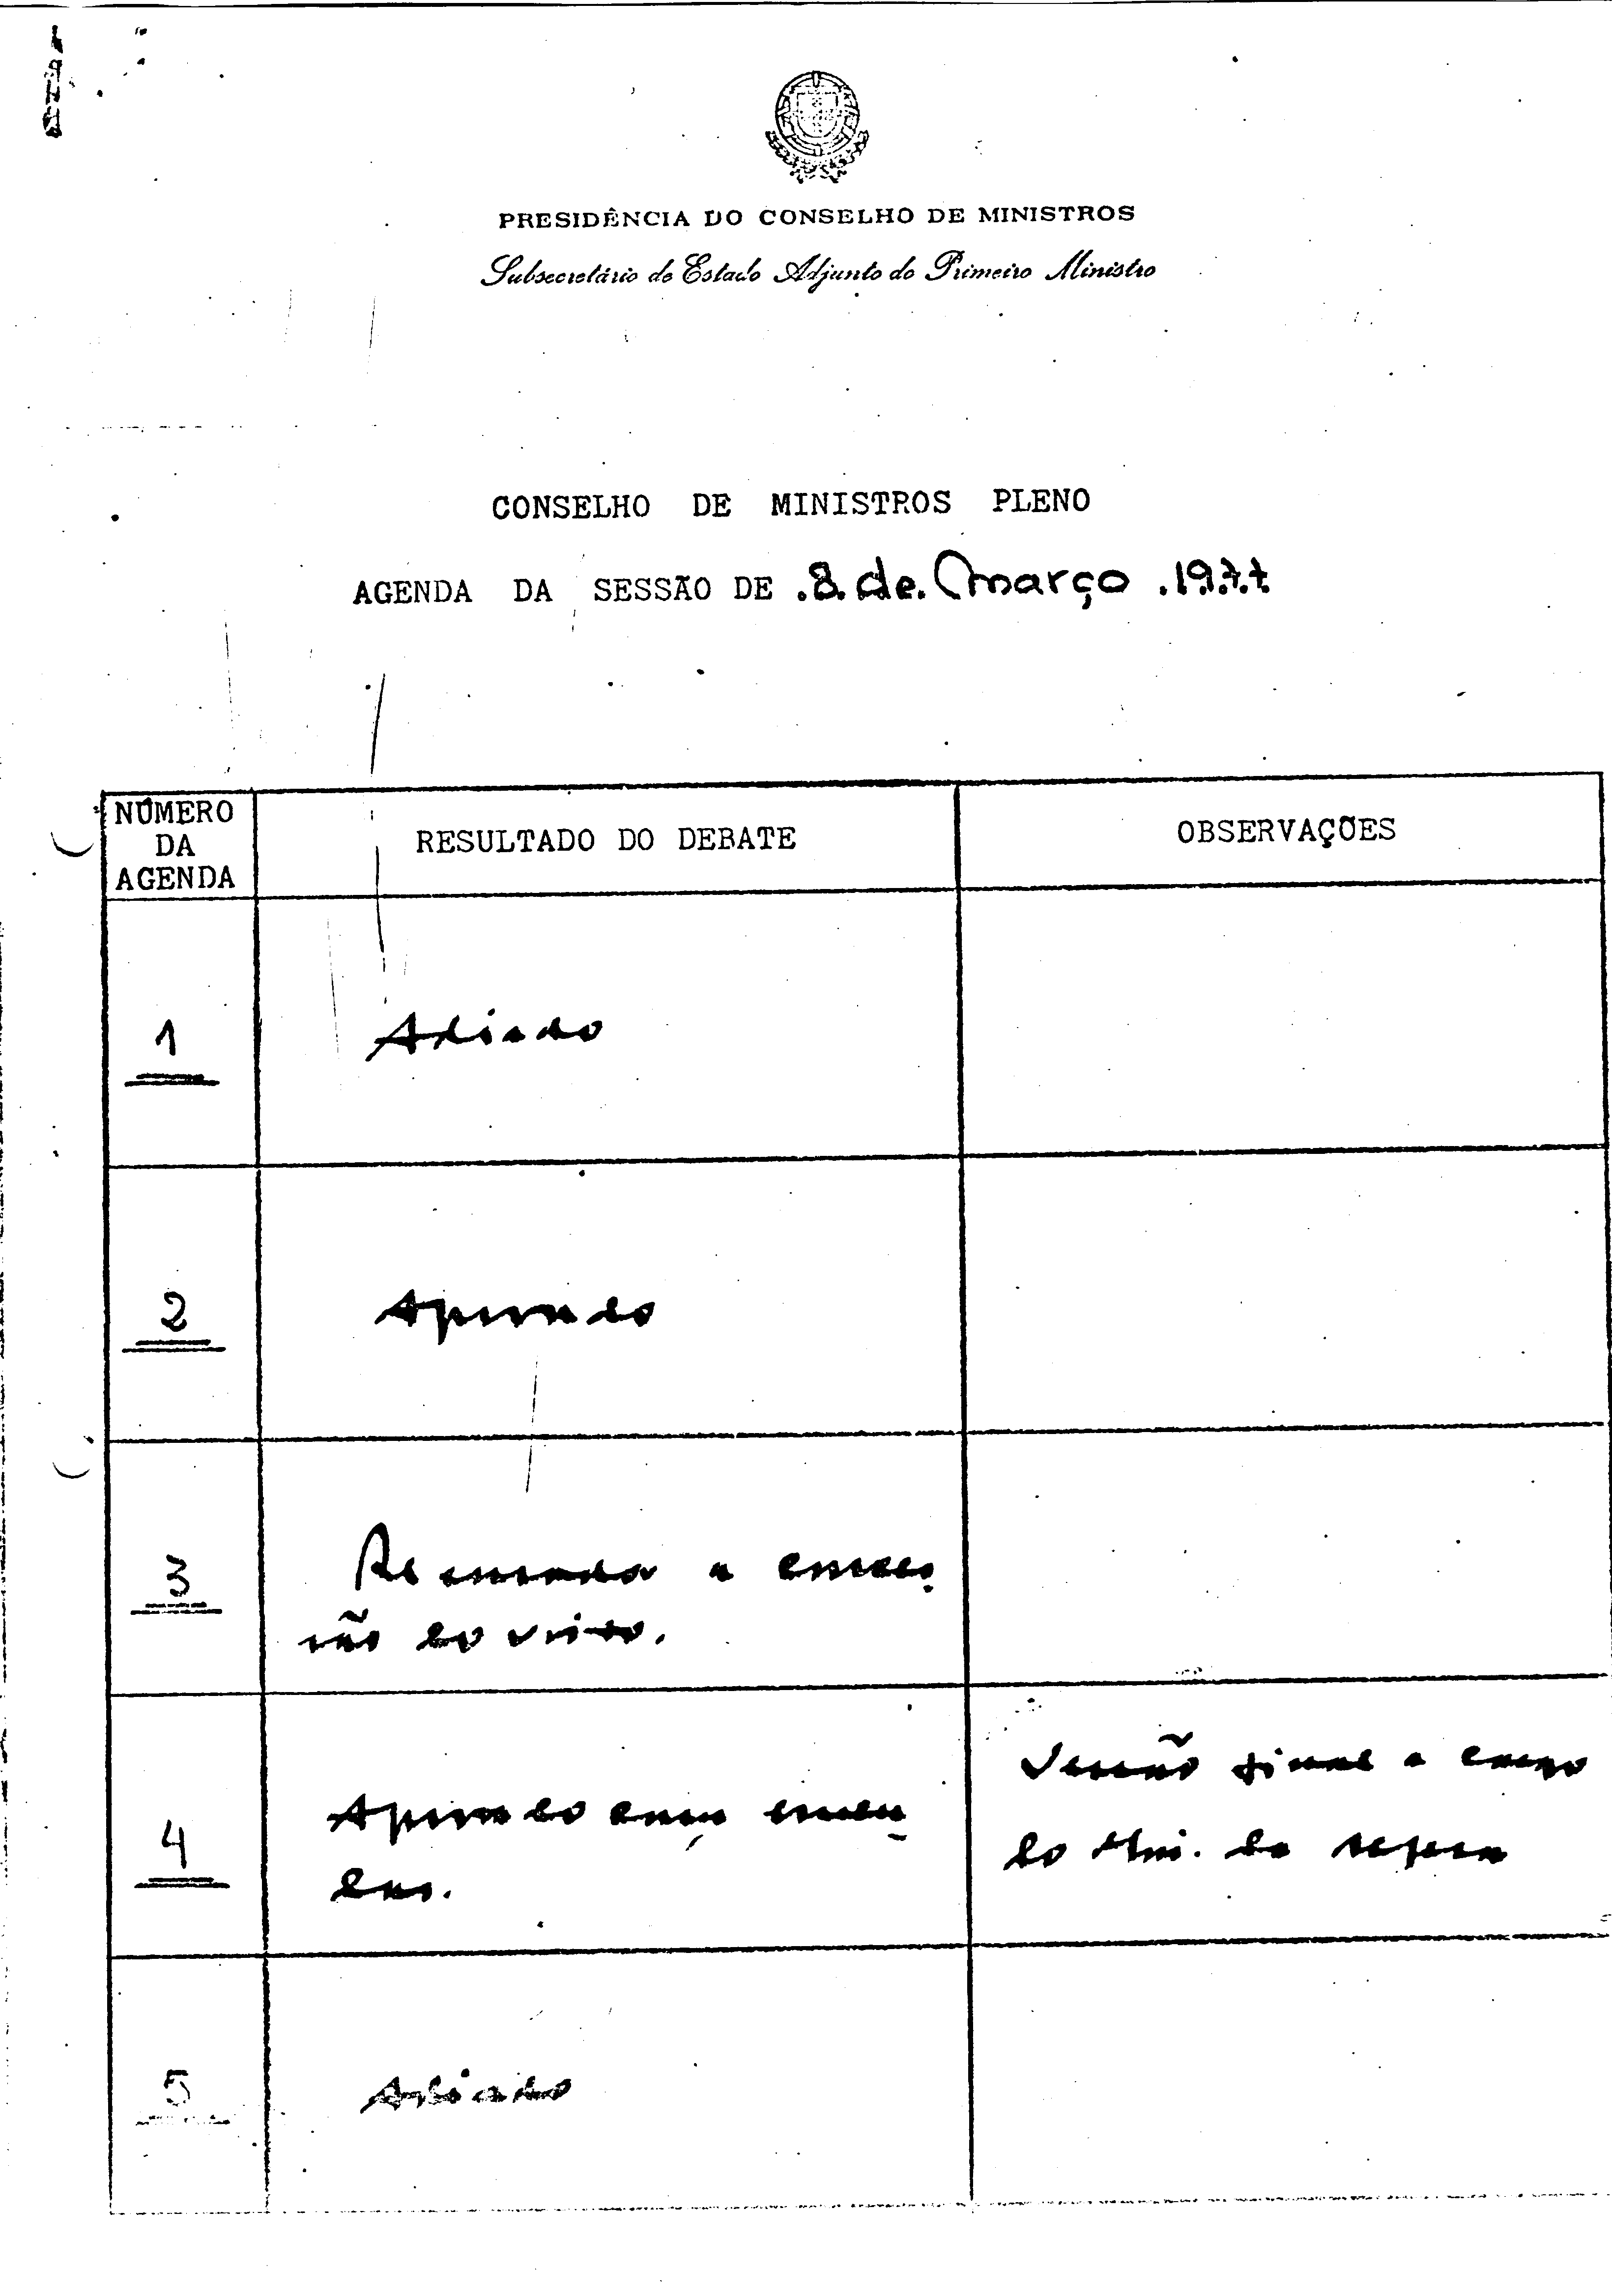 PRESIDÊNCIA DO CONSELHO DE MINISTROS
Subsecretário de Estado Adjunto do Primeiro Ministro
CONSELHO DE MINISTROS PLENO
AGENDA DA SESSÃO DE 8 de Março 1977
NÚMERO
DA
AGENDA
RESULTADO DO DEBATE
OBSERVAÇÕES
1
Adiado
2
Aprovado
3
a
são do visto.
4
Aprovado com emen
das.
Versão final a cargo
do Min. da
5
Adiado